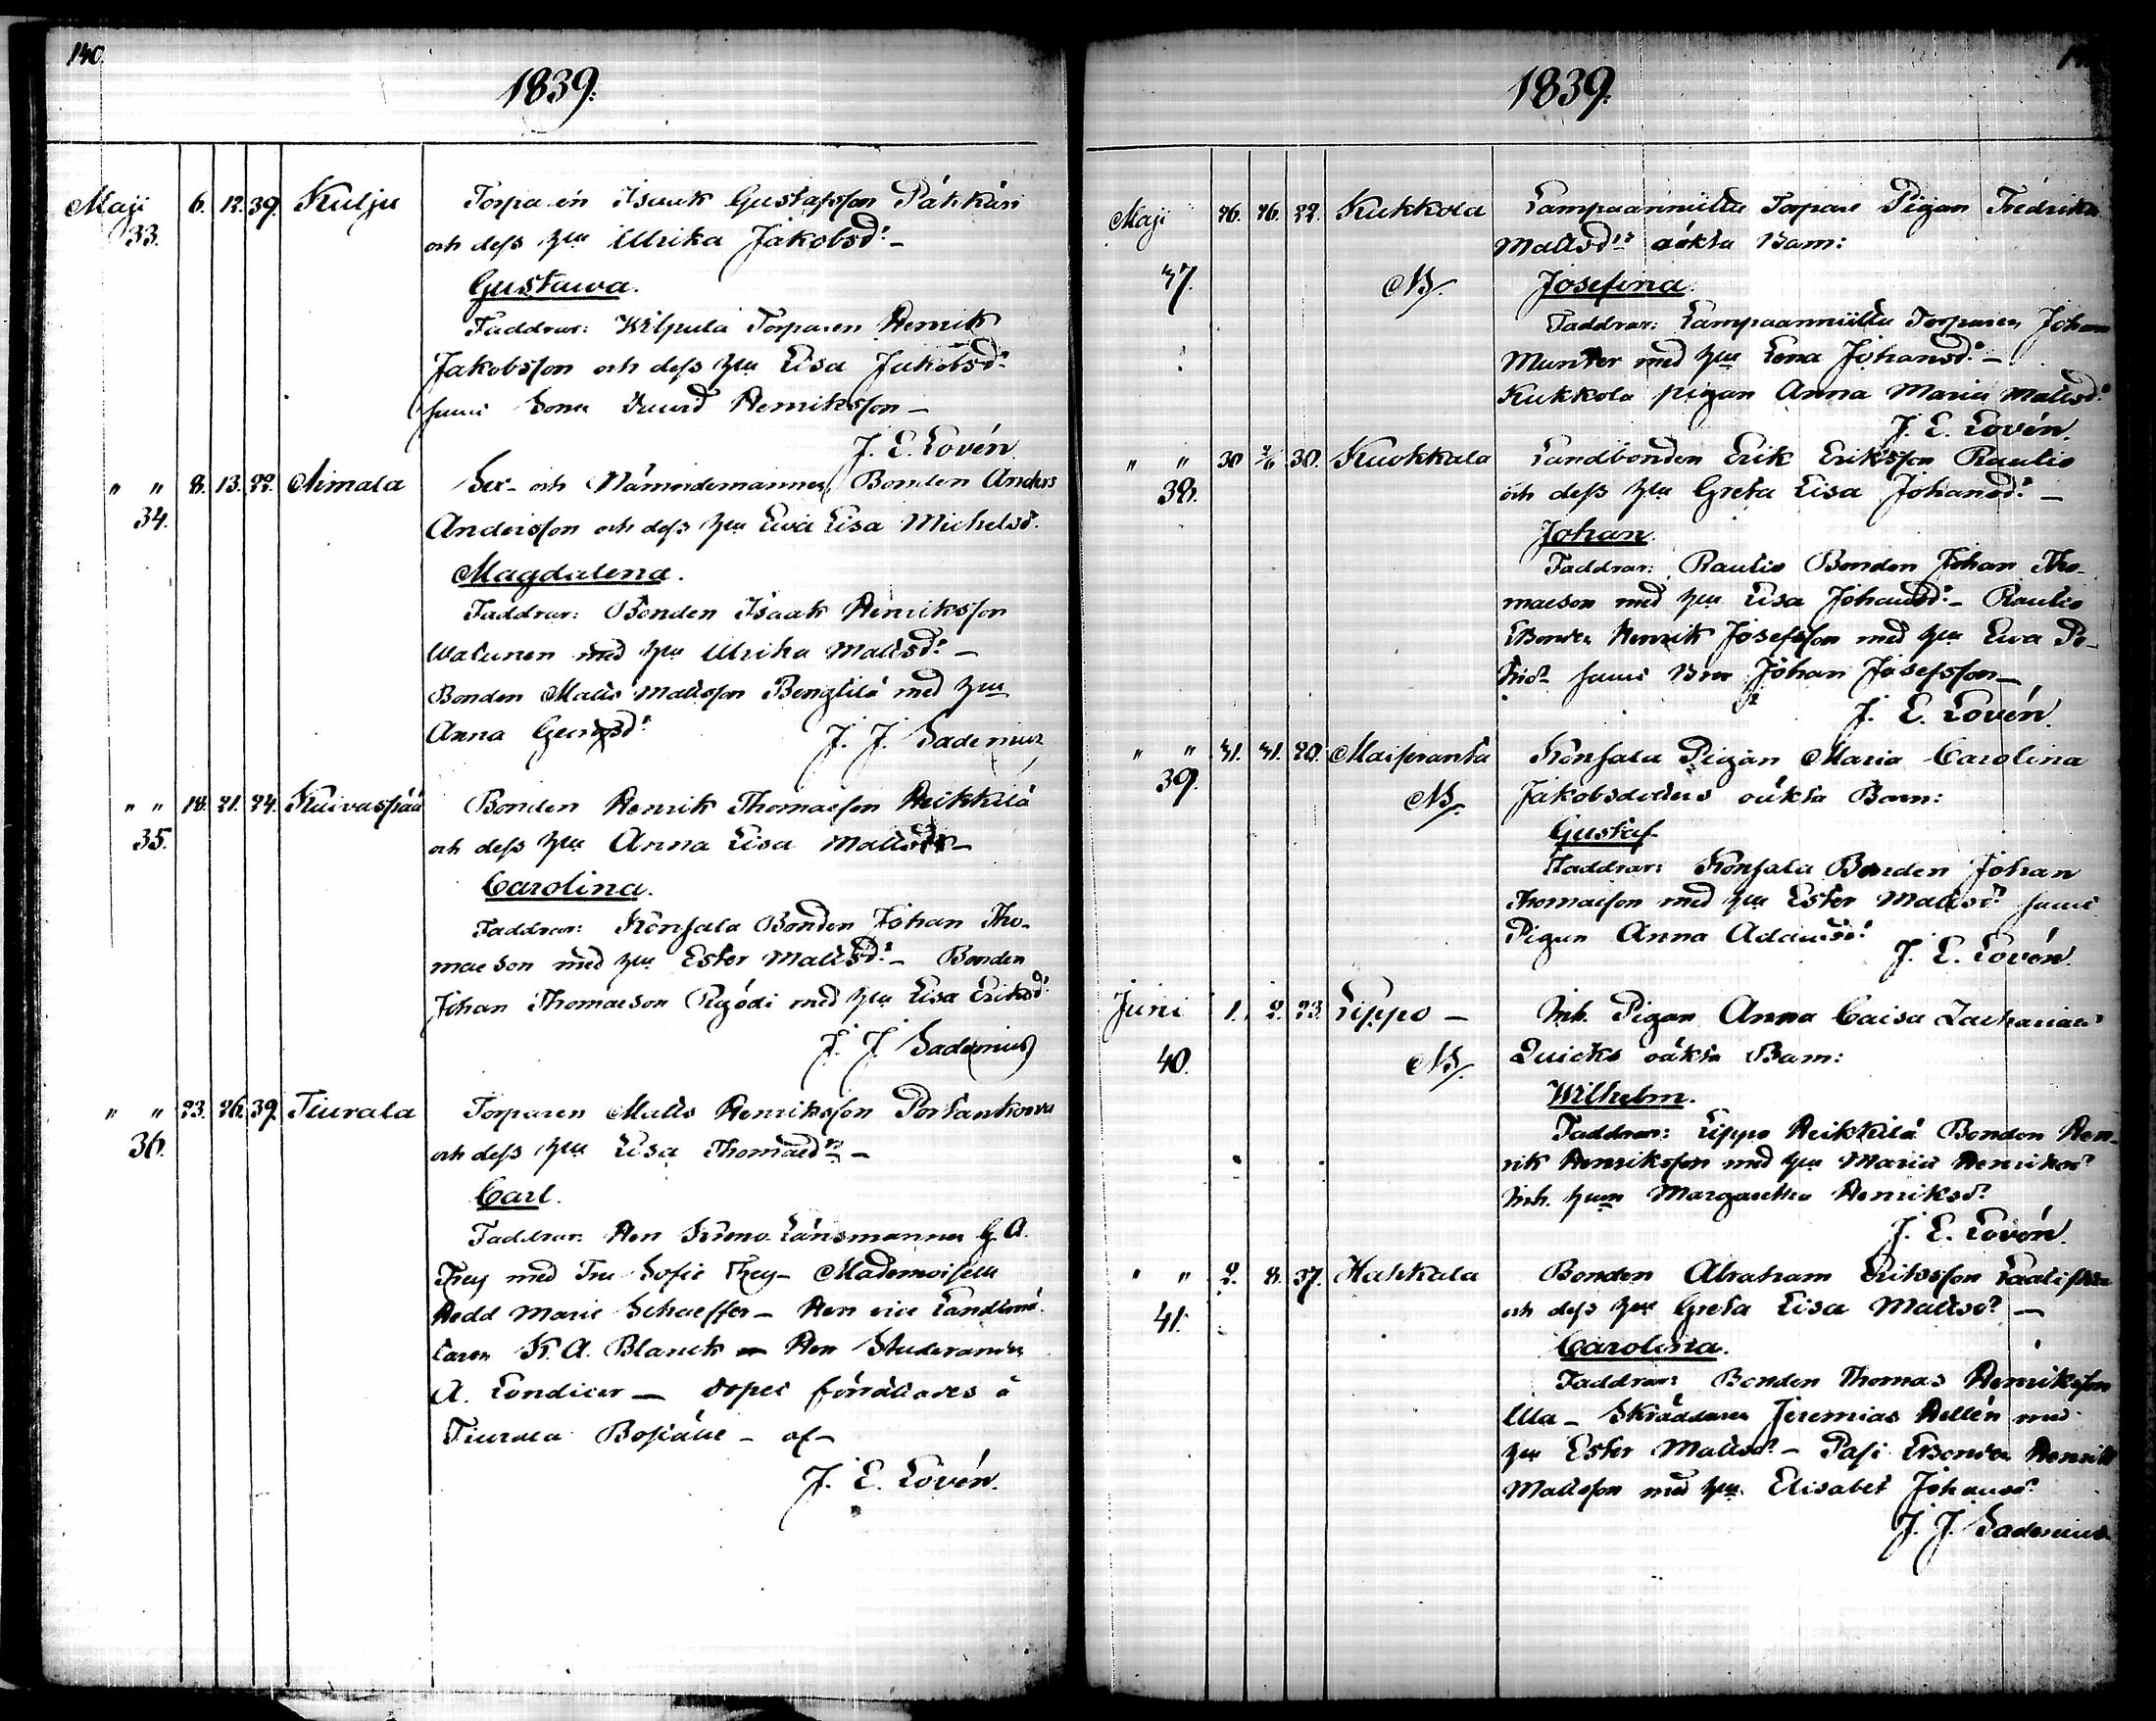 140.
1839.
Maji 6. 12. 39. Kulju Torparen Isaak Gustafsson Päkkäri
33. och dess hu Ulrika Jakobsd:r –
Gustawa.
Faddrar: Wilpula Torparen Henrik
Jakobsson och dess hu Lisa Jakobsd:r
samt Sonen David Henriksson –
J. E. Lovén.
" " 8. 13. 22. Aimala Sex- och Nämndemannen, Bonden Anders
34. Andersson och dess hu Ewa Lisa Michelsd:r
Magdalena.
Faddrar: Bonden Isaak Henriksson
Uatunen med hu Ulrika Matsd:r –
Bonden Matts Mattsson Bengtilä med hu
Anna Georgsd:r J. J. Sadenius
" " 18. 21. 24. Kuivaspää Bonden Henrik Thomasson Heikkilä
35. och dess hu Anna Lisa Mattsd:r –
Carolina.
Faddrar: Könsala Bonden Johan Tho-
masson med hu Ester Mattsd:r – Bonden
Johan Thomasson Rysödi med hu Lisa Eriksd:r
J. J. Sadenius
" " 23. 26. 39. Tiurala Torparen Matts Henriksson Portankorva
36. och dess hu Lisa Thomasd:r –
Carl.
Faddrar: Herr Krono Länsmannen G. A.
Frey med Fru Sofie Frey – Mademoiselle
Hedd Marie Schaeffer – Herr vice Landtmä-
taren K. A. Blanck – Herr Studeranden
A. Londicer – dopet förrättades å
Tiurala Boställe – af –
J. E. Lovén.
1839.
Maji 26. 26. 22. Kukkola Lampaanniittu Torpare Pigan Fredrika
Mattsd:rs oäkta Barn:
37. NB. Josefina.
Faddrar: Lampaanniittu Torparen Johan
Munter med hu Lena Johansd:r –
Kukkola pigan Anna Maria Mattsd:r
J. E. Lovén.
" " 30 2/6 30. Kuokkala Landbonden Erik Eriksson Rautio
38. och dess hu Greta Lisa Johansd:r –
Johan.
Faddrar: Rautio Bonden Johan Tho-
masson med hu Lisa Johansd:r – Rautio
Bonden Henrik Josefsson med hu Ewa Pe-
trid:r samt Bror Johan Josefsson –
J. E. Lovén.
" " 31. 31. 20. Maisranta Könsala Pigan Maria Carolina
39. NB. Jakobsdotters oäkta Barn:
Gustaf
Faddrar: Könsala Bonden Johan
Thomasson med hu Ester Mattsd:r samt
Pigan Anna Adamsd:r
J. E. Lovén.
Juni 1. 2. 23. Lippo – Inh. Pigan Anna Caisa Zachariaed:r
40. NB. Quicks oäkta Barn:
Wilhelm.
Faddrar: Lippo Heikkilä Bonden Hen-
rik Henriksson med hu Maria Henriksd:r
Inh. hun Margaretha Henriksd:r
J. E. Lovén.
" " 2. 8. 37. Hahkala Bonden Abraham Eriksson
41. och dess hu Greta Lisa Mattsd:r –
Carolina.
Faddrar: Bonden Thomas Henriksson
Ulla – Skräddaren Jeremias Hellén med
hu Ester Mattsd:r – Pasi Bonden Henrik
Mattsson med hu Elisabet Johansd:r
J. J. Sadenius.